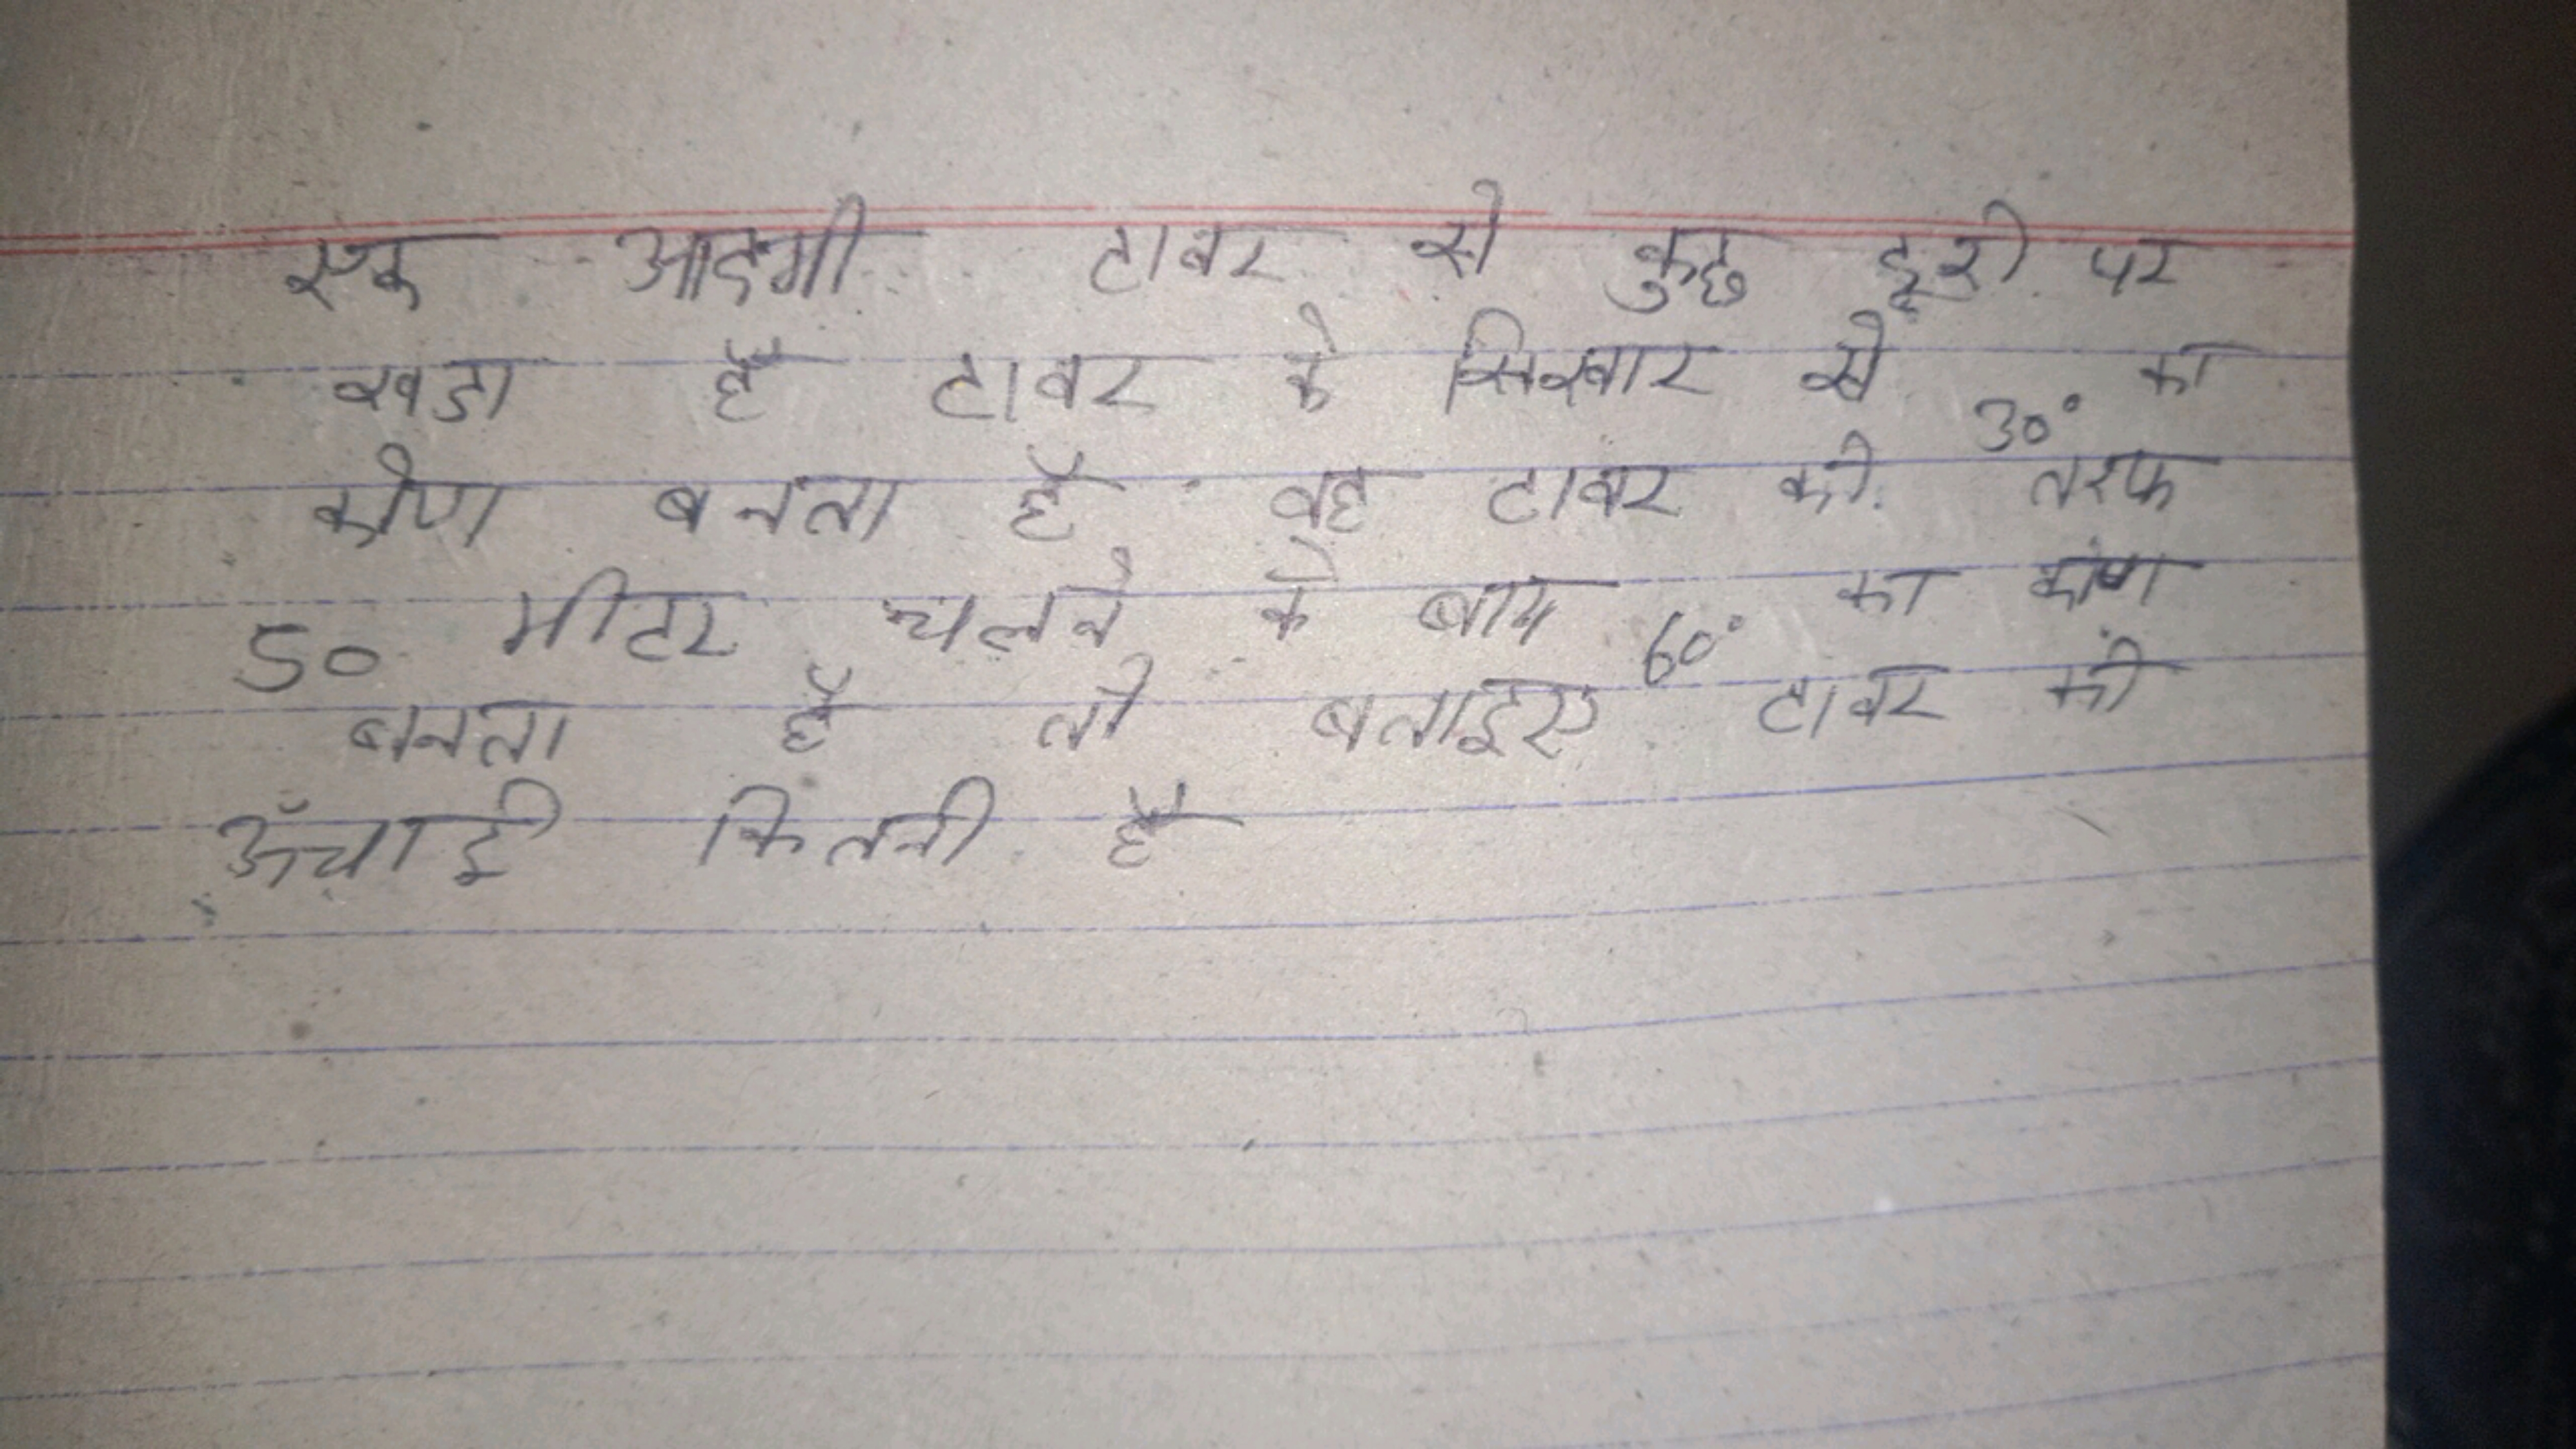 एक आदमी टावर से कुछ दूरी पर
खडा है टावर के सिखार से 30° का
कोण बनता है वह टावर की तरफ
50 मीटर चलने के बाद 60° का कोण
बनता है तो बताइए टावर की
ऊँचाई कितनी है